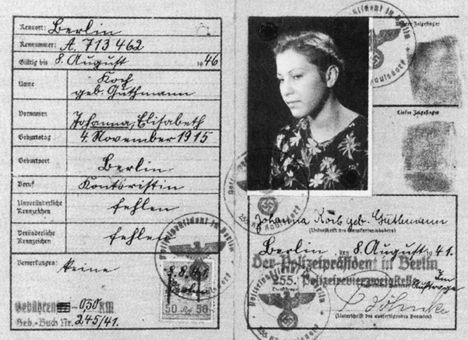 Kennort: Berlin
Kennnummer: A. 713462
Gültig bis 8. August 1946
Name Koch
geb. Guthmann
Vornamen Johanna, Elisabeth
Geburtstag 4. November 1915
Geburtsort Berlin
Beruf Kontoristin
Unveränderliche
Kennzeichen fehlen
Veränderliche
Kennzeichen fehlen
Bemerkungen: keine
Gebühren 030 RM
Geb.-Buch Nr. 245/41.
50 50
Rechter Zeigefinger
Linker Zeigefinger
Johanna Koch geb. Guthmann
(Unterschrift des Kennkarteninhabers)
Berlin, den 8. August 1941.
Der Polizeipräsident in Berlin
255. Polizeirevierzweigstelle
Im
Auftrage
(Unterschrift des ausfertigenden Beamten)